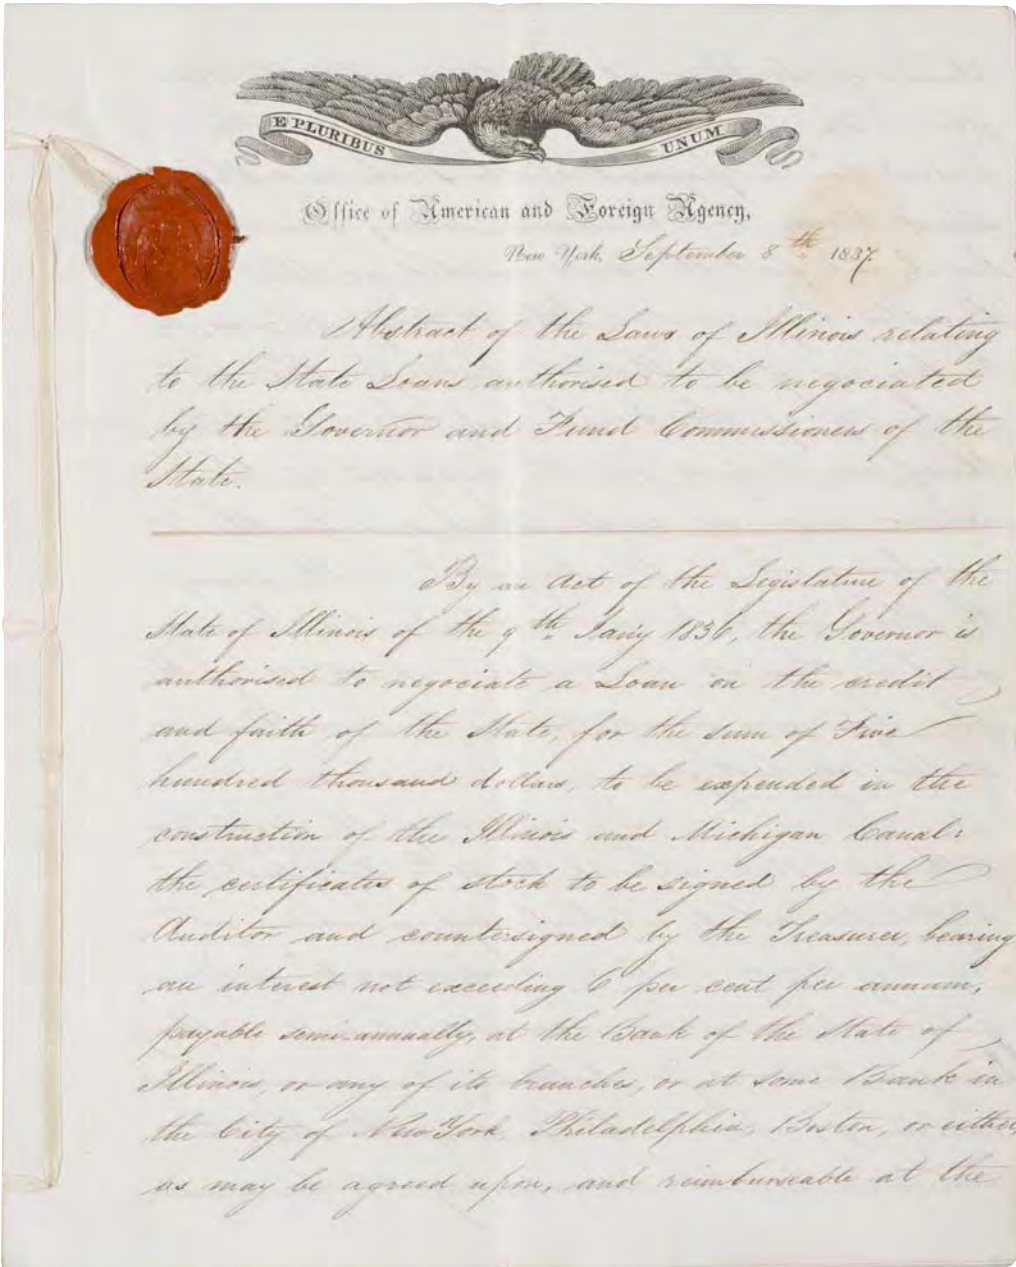 E PLURIBUS UNUM
Office of American and Foreign Agency,
New York, September 8th 1837.
Abstract of the Laws of Illinois relating
to the State Loans authorised to be negociated
by the Governor and Fund Commissioners of the
State.
By an Act of the Legislature of the
State of Illinois of the 9th Jany 1836, the Governor is
authorised to negociate a Loan on the credit
and faith of the State, for the sum of Five
hundred thousand dollars, to be expended in the
construction of the Illinois and Michigan Canal:
the certificates of stock to be signed by the
Auditor and countersigned by the Treasurer, bearing
an interest not exceeding 6 per cent per annum,
payable semi-annually, at the Bank of the State of
Illinois, or any of its branches, or at some Bank in
the City of New York, Philadelphia, Boston, or either,
as may be agreed upon, and reimburseable at the